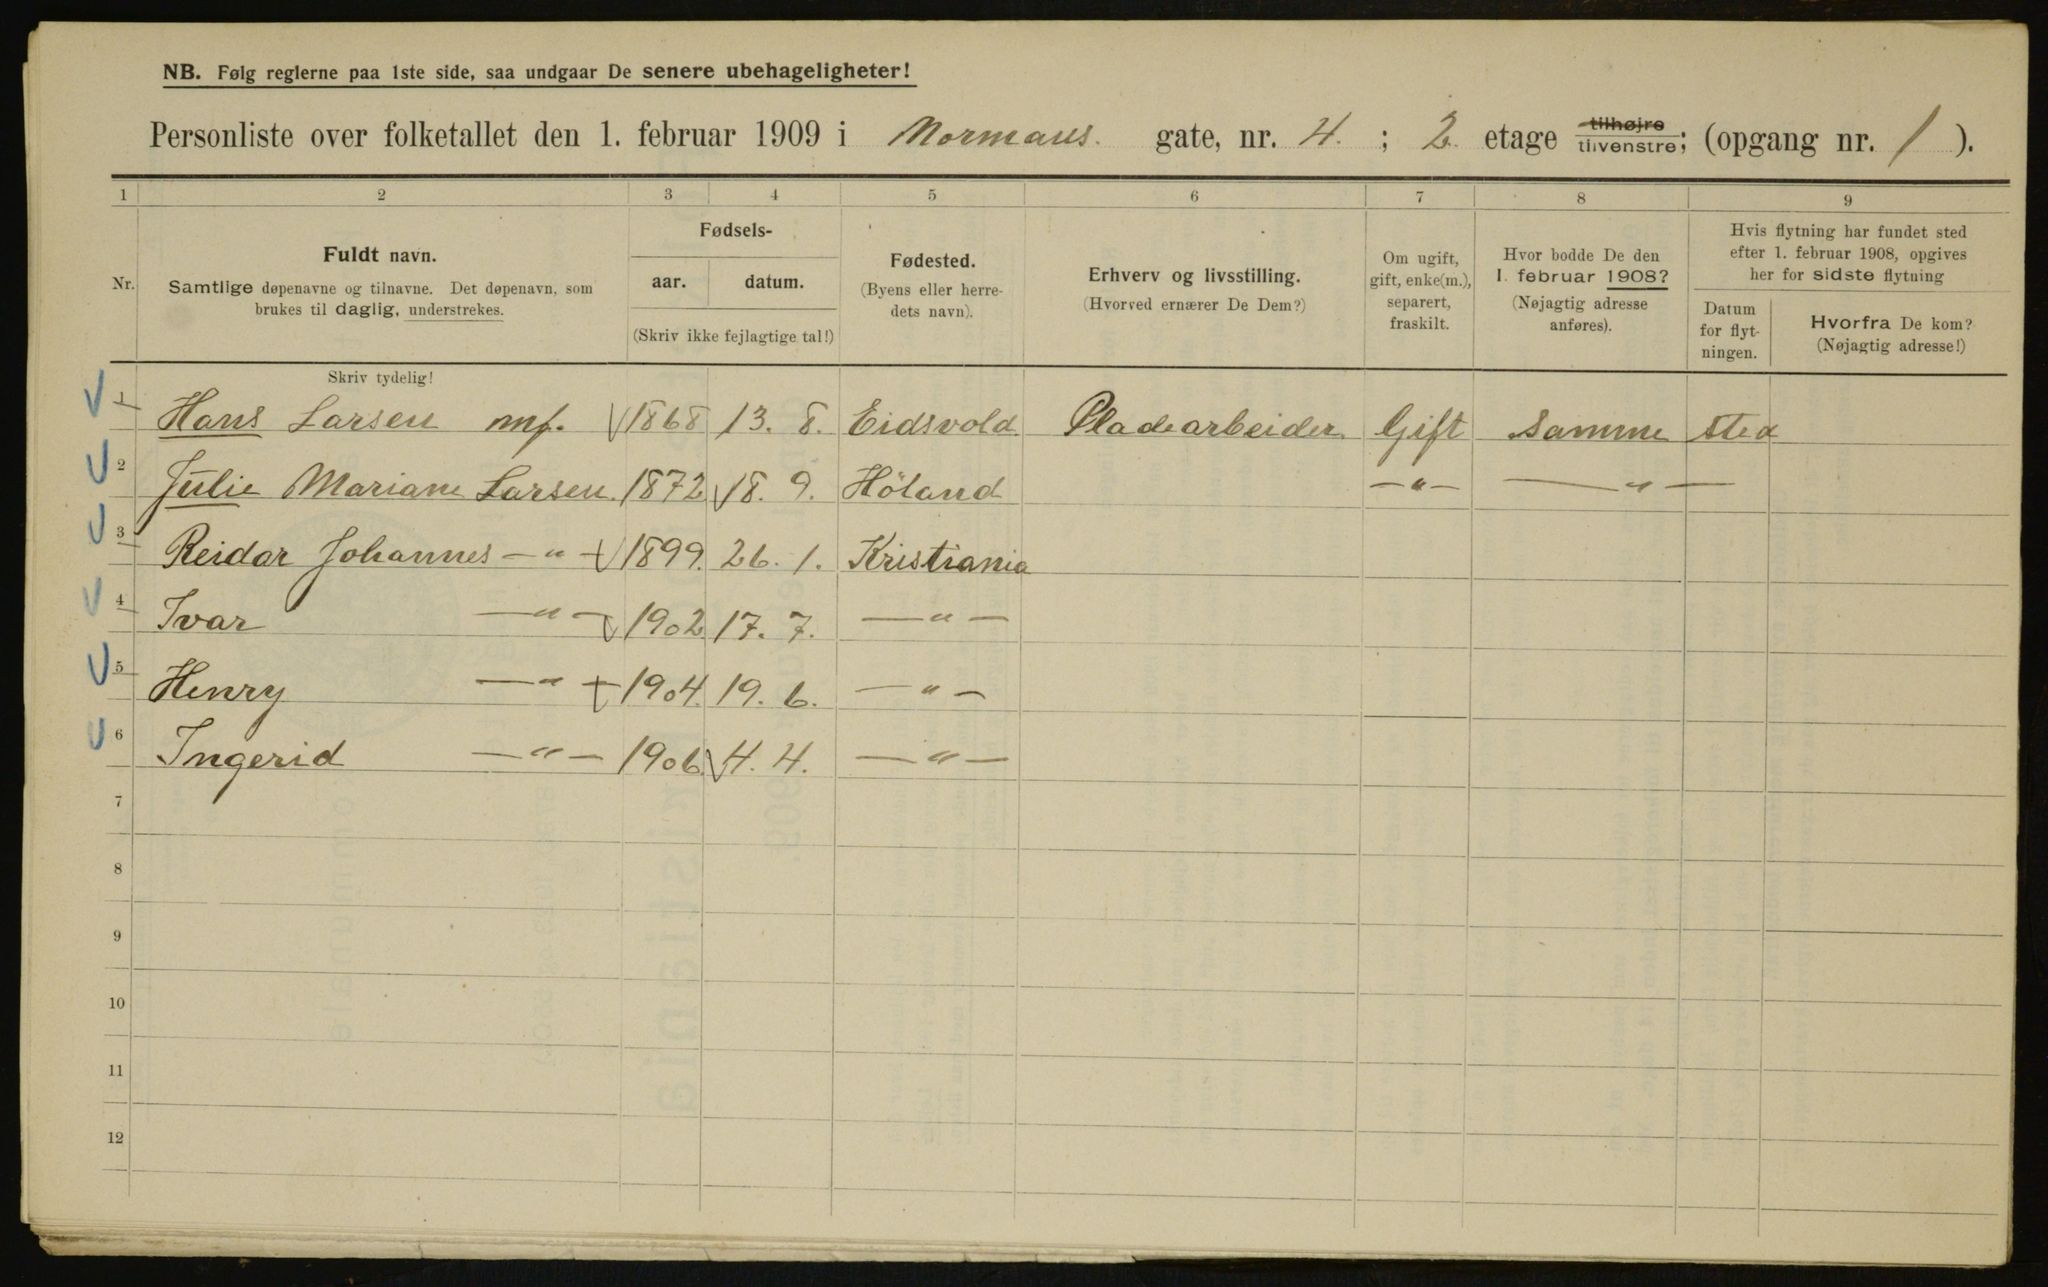 NB. Følg reglerne paa 1ste side, saa undgaar De senere ubehageligheter!
Personliste over folketallet den 1. februar 1909 i Normans. gate, nr. 4. ; 2. etage tilhøjre tilvenstre; (opgang nr. 1 ).
1 2 3 4 5 6 7 8 9
Nr.
Fuldt navn.
Samtlige døpenavne og tilnavne. Det døpenavn, som
brukes til daglig, understrekes.
Fødsels-
aar. datum.
(Skriv ikke fejlagtige tal!)
Fødested.
(Byens eller herre-
dets navn).
Erhverv og livsstilling.
(Hvorved ernærer De Dem?)
Om ugift,
gift, enke(m.),
separert,
fraskilt.
Hvor bodde De den
1. februar 1908?
(Nøjagtig adresse
anføres).
Hvis flytning har fundet sted
efter 1. februar 1908, opgives
her for sidste flytning
Datum
for flyt-
ningen.
Hvorfra De kom?
(Nøjagtig adresse!)
Skriv tydelig!
1 Hans Larsen mf. 1868 13. 8. Eidsvold Pladearbeider Gift Samme sted
2 Julie Mariane Larsen. 1872 18. 9. Höland —"— —"—
3 Reidar Johannes —"— 1899. 26. 1. Kristiania
4 Ivar —"— 1902 17. 7. —"—
5 Henry —"— 1904. 19. 6. —"—
6 Ingerid —"— 1906. 4. 4. —"—
7
8
9
10
11
12